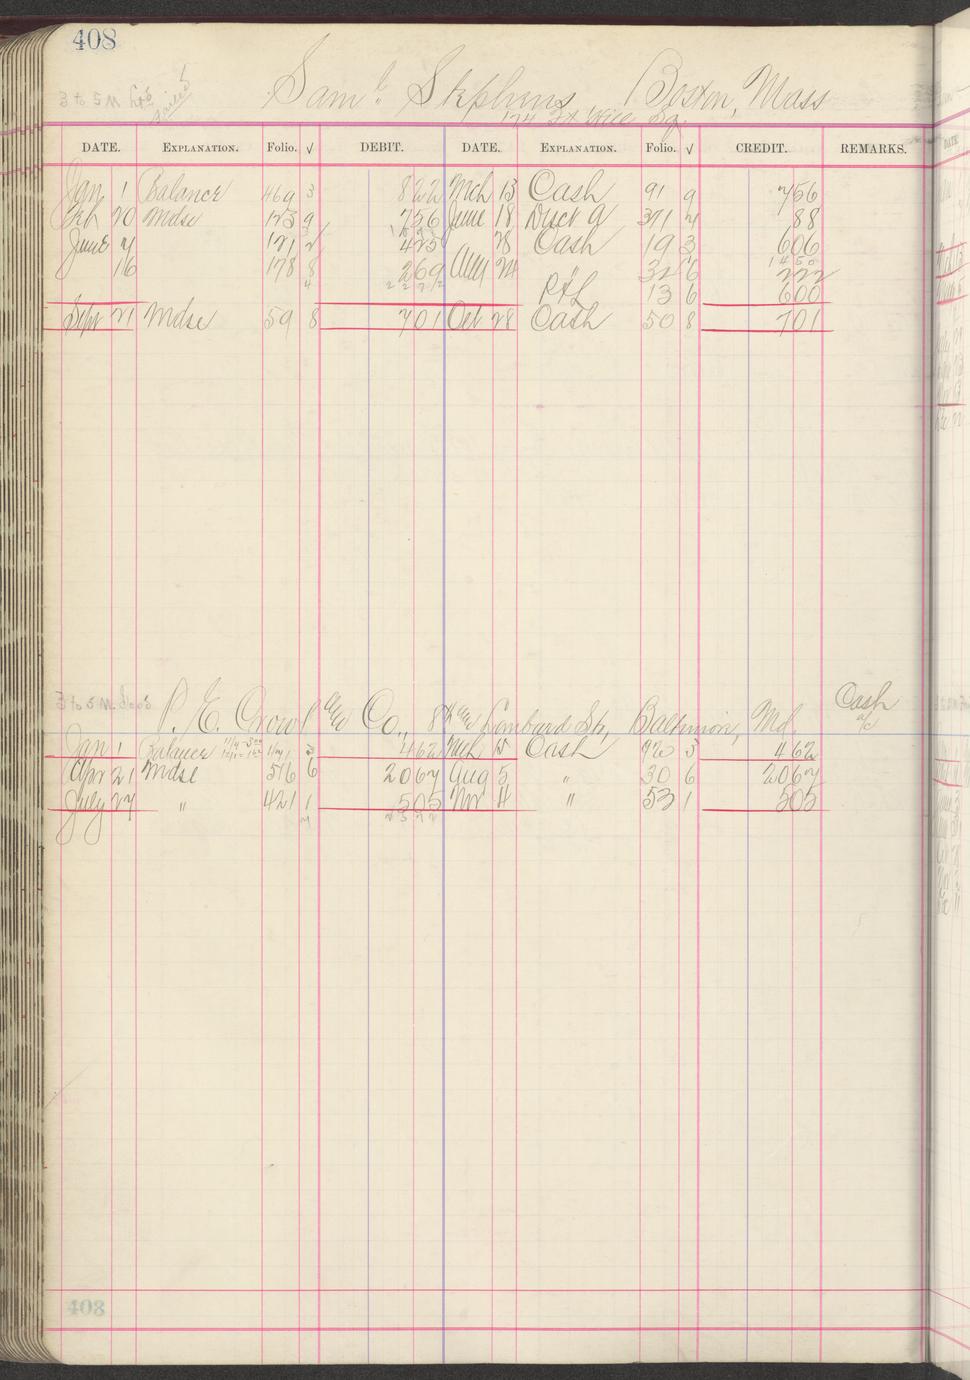 408
3 to 5 M
Saml. Stephens Boston, Mass
DATE. EXPLANATION. Folio. √ DEBIT. DATE. EXPLANATION. Folio. √ CREDIT. REMARKS.
Jan 1 Balance 469 3 822 Mch 13 Cash 91 9 756
Feb 20 Mdse 123 9 756 June 18 Disct a 371 4 88
June 7 121 2 425 28 Cash 19 3 606
16 178 8 269 Aug 24 " 32 6 222
P&L 13 6 600
Sept 21 Mdse 59 8 701 Oct 28 Cash 50 8 701
3 to 5 M.
P. E. Crowl Co., Lombard Sts, Baltimore, Md. Cash a/c
Jan 1 Balance 3 462 Mch 15 Cash 92 3 462
Apr 21 Mdse 516 6 2067 Aug 5 " 30 6 2067
July 27 " 421 1 505 Nov 4 " 53 1 505
408